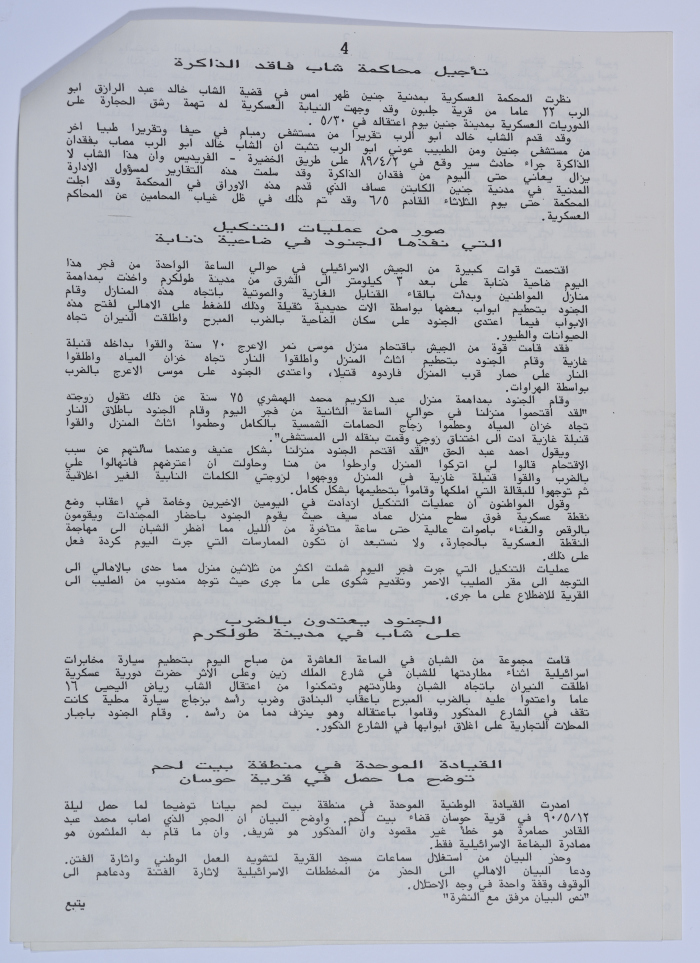 4
تأجيل محاكمة شاب فاقد الذاكرة
نظرت المحكمة العسكرية بمدينة جنين ظهر امس في قضية الشاب خالد عبد الرازق ابو
الرب ٢٢ عاما من قرية جلبون وقد وجهت النيابة العسكرية له تهمة رشق الحجارة على
الدوريات العسكرية بمدينة جنين يوم اعتقاله في ٥/٢٠ .
وقد قدم الشاب خالد ابو الرب تقريرا من مستشفى رمبام في حيفا وتقريرا طبيا اخر
من مستشفى جنين ومن الطبيب عوني ابو الرب تثبت ان الشاب خالد ابو الرب مصاب بفقدان
الذاكرة جراء حادث سير وقع في ٨٩/٤/٢ على طريق الخضيرة - الفريديس وان هذا الشاب لا
يزال يعاني حتى اليوم من فقدان الذاكرة وقد سلمت هذه التقارير لمسؤول الادارة
المدنية في مدنية جنين الكابتن عساف الذي قدم هذه الاوراق في المحكمة وقد اجلت
المحكمة حتى يوم الثلاثاء القادم ٦/٥ وقد تم ذلك في ظل غياب المحامين عن المحاكم
العسكرية.
صور من عمليات التنكيل
التي نفذها الجنود في ضاحية ذنابة
اقتحمت قوات كبيرة من الجيش الاسرائيلي في حوالي الساعة الواحدة من فجر هذا
اليوم ضاحية ذنابة على بعد ٣ كيلومتر الى الشرق من مدينة طولكرم واخذت بمداهمة
منازل المواطنين وبدأت بالقاء القنابل الغازية والصوتية باتجاه هذه المنازل وقام
الجنود بتحطيم ابواب بعضها بواسطة الات حديدية ثقيلة وذلك للضغط على الاهالي لفتح هذه
الابواب فيما اعتدى الجنود على سكان الضاحية بالضرب المبرح واطلقت النيران تجاه
الحيوانات والطيور.
فقد قامت قوة من الجيش باقتحام منزل موسى نمر الاعرج ٧٠ سنة والقوا بداخله قنبلة
غازية وقام الجنود بتحطيم اثاث المنزل واطلقوا النار تجاه خزان المياه واطلقوا
النار على حمار قرب المنزل فاردوه قتيلا، واعتدى الجنود على موسى الاعرج بالضرب
بواسطة الهراوات.
وقام الجنود بمداهمة منزل عبد الكريم محمد الهمشري ٧٥ سنة عن ذلك تقول زوجته
"لقد اقتحموا منزلنا في حوالي الساعة الثانية من فجر اليوم وقام الجنود باطلاق النار
تجاه خزان المياه وحطموا زجاج الحمامات الشمسية بالكامل وحطموا اثاث المنزل والقوا
قنبلة غازية ادت الى اختناق زوجي وقمت بنقله الى المستشفى".
ويقول احمد عبد الحق "لقد اقتحم الجنود منزلنا بشكل عنيف وعندما سألتهم عن سبب
الاقتحام قالوا لي اتركوا المنزل وارحلوا من هنا وحاولت ان اعترضهم فانهالوا علي
بالضرب والقوا قنبلة غازية في المنزل ووجهوا لزوجتي الكلمات النابية الغير اخلاقية
ثم توجهوا للبقالة التي املكها وقاموا بتحطيمها بشكل كامل.
وقول المواطنون ان عمليات التنكيل ازدادت في اليومين الاخيرين وخاصة في اعقاب وضع
نقطة عسكرية فوق سطح منزل عماد سيف حيث يقوم الجنود باحضار المجندات ويقومون
بالرقص والغناء باصوات عالية حتى ساعة متأخرة من الليل مما اضطر الشبان الى مهاجمة
النقطة العسكرية بالحجارة، ولا نستبعد ان تكون الممارسات التي جرت اليوم كردة فعل
على ذلك.
عمليات التنكيل التي جرت فجر اليوم شملت اكثر من ثلاثين منزل مما حدى بالاهالي الى
التوجه الى مقر الصليب الاحمر وتقديم شكوى على ما جرى حيث توجه مندوب من الصليب الى
القرية للاضطلاع على ما جرى.
الجنود يعتدون بالضرب
على شاب في مدينة طولكرم
قامت مجموعة من الشبان في الساعة العاشرة من صباح اليوم بتحطيم سيارة مخابرات
اسرائيلية اثناء مطاردتها للشبان في شارع الملك زين وعلى الاثر حضرت دورية عسكرية
اطلقت النيران باتجاه الشبان وطاردتهم وتمكنوا من اعتقال الشاب رياض اليحيى ١٦
عاما واعتدوا عليه بالضرب المبرح باعقاب البنادق وضرب رأسه بزجاج سيارة محلية كانت
تقف في الشارع المذكور وقاموا باعتقاله وهو ينزف دما من رأسه . وقام الجنود باجبار
المحلات التجارية على اغلاق ابوابها في الشارع الذكور.
القيادة الموحدة في منطقة بيت لحم
توضح ما حصل في قرية حوسان
اصدرت القيادة الوطنية الموحدة في منطقة بيت لحم بيانا توضيحا لما حصل ليلة
٩٠/٥/١٢ في قرية حوسان قضاء بيت لحم. واوضح البيان ان الحجر الذي اصاب محمد عبد
القادر حمامرة هو خطأ غير مقصود وان المذكور هو شريف. وان ما قام به الملثمون هو
مصادرة البضاعة الاسرائيلية فقط.
وحذر البيان من استغلال سماعات مسجد القرية لتشويه العمل الوطني واثارة الفتن.
ودعا البيان الاهالي الى الحذر من المخططات الاسرائيلية لاثارة الفتنة ودعاهم الى
الوقوف وقفة واحدة في وجه الاحتلال.
"نص البيان مرفق مع النشرة"
يتبع